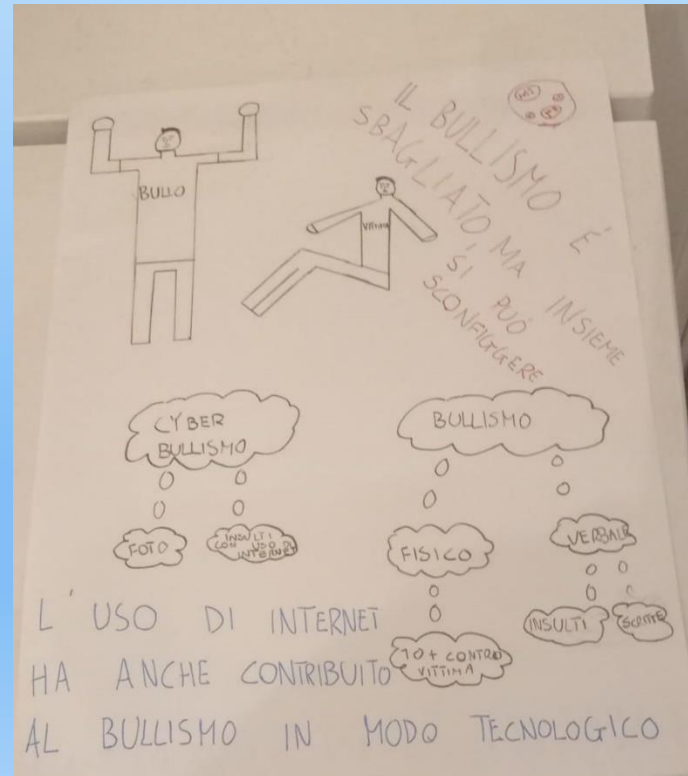 BULLO
VITTIMA
IL BULLISMO É
SBAGLIATO MA INSIEME
SI PUÓ
SCONFIGGERE
CYBER
BULLISMO
FOTO
INSULTI
CON USO DI
INTERNET
BULLISMO
FISICO
10+ CONTRO
VITTIMA
VERBALE
INSULTI
L'USO DI INTERNET
HA ANCHE CONTRIBUITO
AL BULLISMO IN MODO TECNOLOGICO